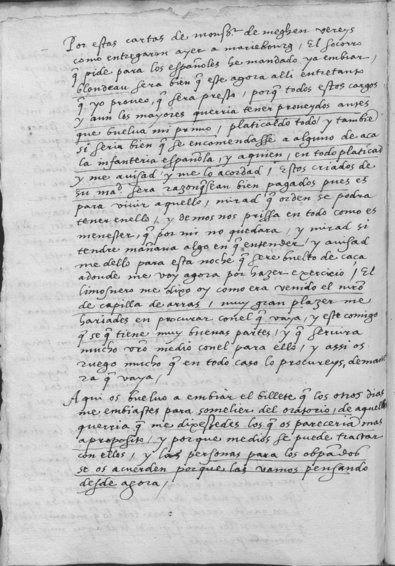 Por estas cartas de monsr de meghen vereys
como entregaron ayer a mariebourg, El socorro
q pide para los españoles he mandado ya embiar,
blondeau sera bien q este agora alli entretanto
q yo proueo, q sera presto, porq todos estos cargos
y aun los mayores querria tener proueydos antes
que buelua mi primo, platicaldo todo y tambie
si seria bien q se encomendasse a alguno de aca
la infanteria española, y aquien, en todo platicad
y me auisad y me lo acordad, Estos criados de
su mad sera razon q sean bien pagados pues es
para viuir aquello, mirad q orden se podra
tener en ello, y demos nos prissa en todo como es
menester, q por mi no quedara, y mirad si
tendre mañana algo en q entender y auisad
me dello para esta noche q sere buelto de caça
adonde me voy agora por hazer exercicio, El
limosnero me dixo oy como era venido el mro
de capilla de arras, muy gran plazer me
hariades en procurar conel q vaya, y este comigo
q se q tiene muy buenas partes, y q seruira
mucho vro medio conel para ello, y assi os
ruego mucho q en todo caso lo procureys, de mane
ra q vaya,
Aqui os bueluo a embiar el billete q los otros dias
me embiastes para somelier del oratorio, de aquello
querria q me dixessedes los q os pareceria mas
a proposito, y porque medios se puede tractar
con ellos, y las personas para los obpados
se os acuerden porque las vamos pensando
desde agora,